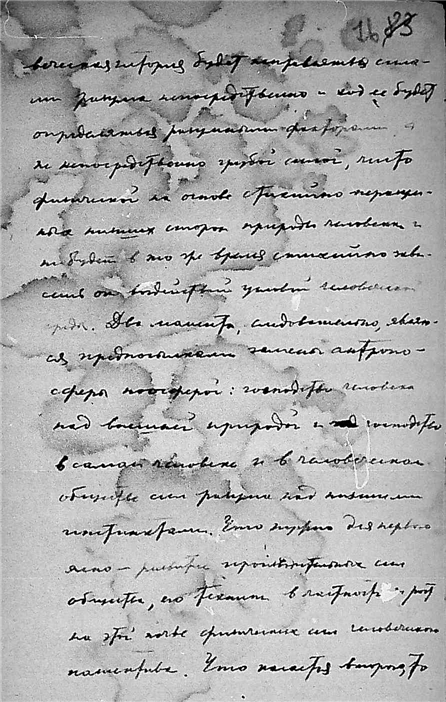 16 83
веческая история будет направляться сила-
ми разума непосредственно и ход ее будет
определяться разумными факторами, а
не непосредственно грубой силой, чисто
физической на основе стихийно
низших сторон природы человека и
не будет в то же время стихийно зави-
сеть от воздействий условий человеческ
среды. Два момента, следовательно, являют-
ся предпосылками замены антропо-
сферы ноосферой: господство человека
над внешней природой и господство
в самом человеке и в человеческом
обществе сил разума над низшими
инстинктами. Что нужно для первого
ясно — развитие производительных сил
общества, его техники в частности и рост
на этой почве физических сил человеческого
коллектива. Что касается второго, то